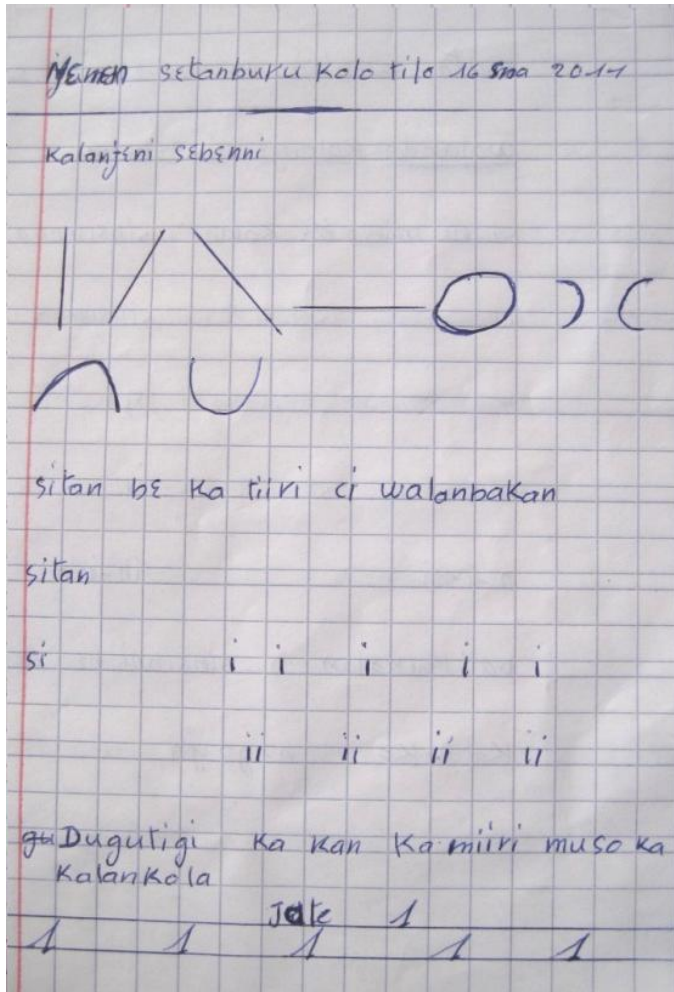 setanburu kalo tile 16 san 2011
Kalanjɛni sɛbɛnni
sitan bɛ ka tiiri ci walanbakan
sitan
si i i i i i
ii ii ii ii
Dugutigi ka kan ka miiri muso ka
kalankola
Jate 1
1 1 1 1 1